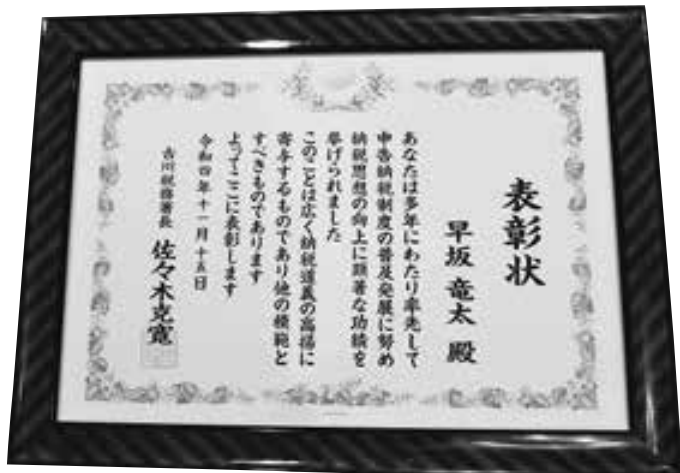 表彰状
早坂 竜太 殿
あなたは多年にわたり率先して
申告納税制度の普及発展に努め
納税思想の向上に顕著な功績を
挙げられました
このことは広く納税道義の高揚に
寄与するものであり他の模範と
すべきものであります
よってここに表彰します
令和四年十一月十五日
古川税務署長 佐々木克寛